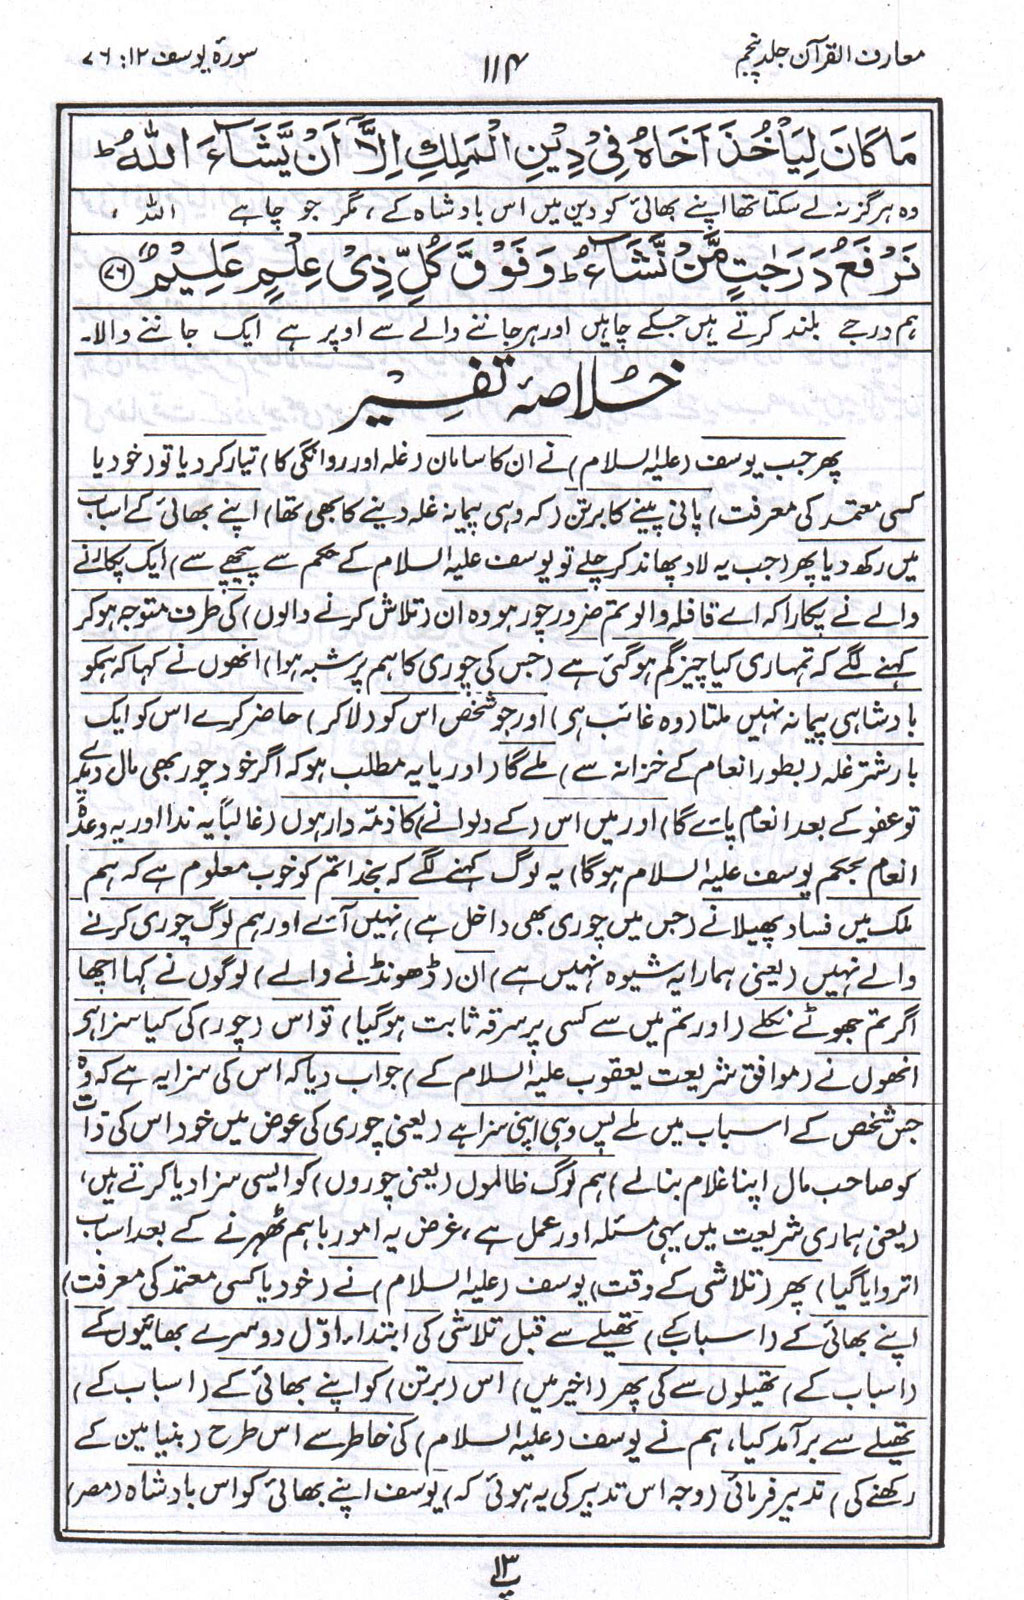 معارف القرآن جلد پنجم
۱۱۴
سورۂ یوسف ۱۲: ۷۶
مَا كَانَ لِيَأْخُذَ أَخَاهُ فِىْ دِيْنِ الْمَلِكِ اِلَّآ اَنْ يَّشَآءَ اللهُ ؕ
وہ ہرگز نہ لے سکتا تھا اپنے بھائی کو دین میں اس بادشاہ کے ، مگر جو چاہے اللہ ،
نَرْفَعُ دَرَجٰتٍ مَّنْ نَّشَآءُ ؕ وَفَوْقَ كُلِّ ذِىْ عِلْمٍ عَلِيْمٌ ﴿۷۶﴾
ہم درجے بلند کرتے ہیں جسکے چاہیں اور ہر جاننے والے سے اوپر ہے ایک جاننے والا۔
خلاصۂ تفسیر
پھر جب یوسف (علیہ السلام) نے ان کا سامان (غلہ اور روانگی کا) تیار کر دیا تو (خود یا
کسی معتمد کی معرفت) پانی پینے کا برتن (کہ وہی پیمانہ غلہ دینے کا بھی تھا) اپنے بھائی کے اسباب
میں رکھ دیا پھر (جب یہ لاد پھاند کر چلے تو یوسف علیہ السلام کے حکم سے پیچھے سے) ایک پکارنے
والے نے پکارا کہ اے قافلہ والو تم ضرور چور ہو وہ ان (تلاش کرنے والوں) کی طرف متوجہ ہو کر
کہنے لگے کہ تمہاری کیا چیز گم ہو گئی ہے (جس کی چوری کا ہم پر شبہ ہوا) انھوں نے کہا کہ ہمکو
بادشاہی پیمانہ نہیں ملتا (وہ غائب ہی) اور جو شخص اس کو (لا کر) حاضر کرے اس کو ایک
بار شتر غلہ (بطور انعام کے خزانہ سے) ملے گا (اور یا یہ مطلب ہو کہ اگر خود چور بھی مال دیدے
تو عفو کے بعد انعام پائے گا) اور میں اس (کے دلوانے) کا ذمّہ دار ہوں (غالباً یہ ندا اور یہ وعدۂ
انعام بحکم یوسف علیہ السلام ہوگا) یہ لوگ کہنے لگے کہ بخدا تم کو خوب معلوم ہے کہ ہم
ملک میں فساد پھیلانے (جس میں چوری بھی داخل ہے) نہیں آئے اور ہم لوگ چوری کرنے
والے نہیں (یعنی ہمارا یہ شیوہ نہیں ہے) ان (ڈھونڈنے والے) لوگوں نے کہا اچھا
اگر تم جھوٹے نکلے (اور تم میں سے کسی پر سرقہ ثابت ہو گیا) تو اس (چور) کی کیا سزا ہی
انھوں نے (موافق شریعت یعقوب علیہ السلام کے) جواب دیا کہ اس کی سزا یہ ہے کہ وہ
جس شخص کے اسباب میں ملے پس وہی اپنی سزا ہے (یعنی چوری کی عوض میں خود اس کی ذات
کو صاحب مال اپنا غلام بنالے) ہم لوگ ظالموں (یعنی چوروں) کو ایسی سزا دیا کرتے ہیں،
(یعنی ہماری شریعت میں یہی مسئلہ اور عمل ہے، غرض یہ امور باہم ٹھہرنے کے بعد اسباب
اتروایا گیا) پھر (تلاشی کے وقت) یوسف (علیہ السلام) نے (خود یا کسی معتمد کی معرفت)
اپنے بھائی کے (اسباب کے) تھیلے سے قبل تلاشی کی ابتداء اوّل دوسرے بھائیوں کے
(اسباب کے) تھیلوں سے کی پھر (اخیر میں) اس (برتن) کو اپنے بھائی کے (اسباب کے)
تھیلے سے برآمد کیا، ہم نے یوسف (علیہ السلام) کی خاطر سے اس طرح (بنیامین کے
رکھنے کی) تدبیر فرمائی (وجہ اس تدبیر کی یہ ہوئی کہ) یوسف اپنے بھائی کو اس بادشاہ (مصر)
پ ۱۳